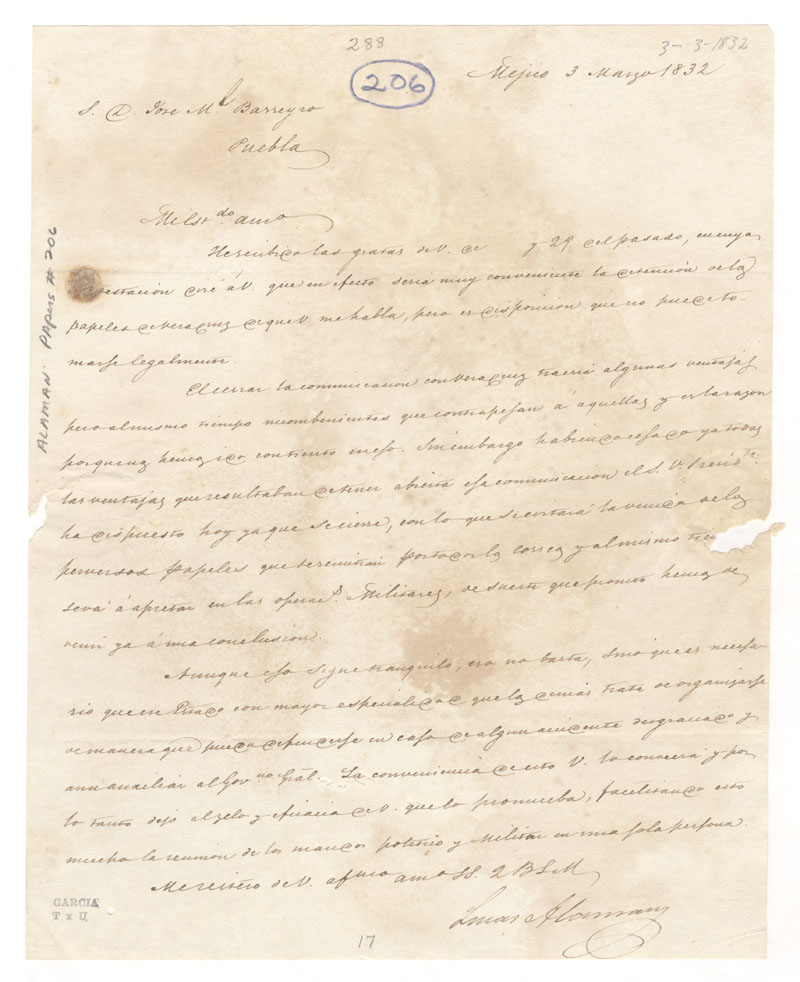 288
3-3-1832
206
Mejico 3 Marzo 1832
S. D. Jose M.l Barreyro
Puebla
Mi est.do amo
He recibido las gratas de V. de y 29 del pasado, en cuya
contestación diré á V. que en efecto seria muy conveniente la detención de los
papeles de Veracruz de que V. me habla, pero es disposicion que no puede to
marse legalmente.
El cerrar la comunicacion con Veracruz traeria algunas ventajas
pero al mismo tiempo incombenientes que contrapesan á aquellas y es la razon
porque nos hemos ido con tiento en eso. Sin embargo habiendo cesado ya todas
las ventajas que resultaban de tener abierta esa comunicacion el S. V. Presid.te
ha dispuesto hoy ya que se cierre, con lo que se evitará la venida de los
perversos papeles que se remitian por todos los correos y al mismo
se vá á apretar en las operac.s Militares, de suerte que pronto hemos de
venir ya á una conclusion.
Aunque eso sigue tranquilo, eso no basta, sino que es necesa
rio que en Estado con mayor especialidad que los demás trate de organizarse
de manera que pueda defenderse en caso de algun accidente desgraciado y
aun auxiliar al Gov.no Gral. La conveniencia de esto V. la conocerá y por
lo tanto dejo al zelo y eficacia de V. que lo promueba, facilitando esto
mucho la reunion de los mandos politico y Militar en una sola persona.
Me reitero de V. afmo amo SS. Q B S M
Lucas Alaman
ALAMAN PAPERS # 206
GARCIA
17